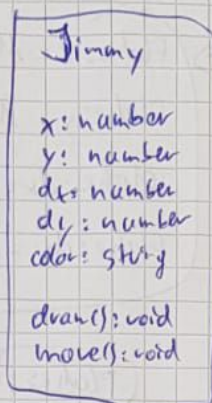 Jimmy
x: number
y: number
dx: number
dy: number
color: string
draw(): void
move(): void